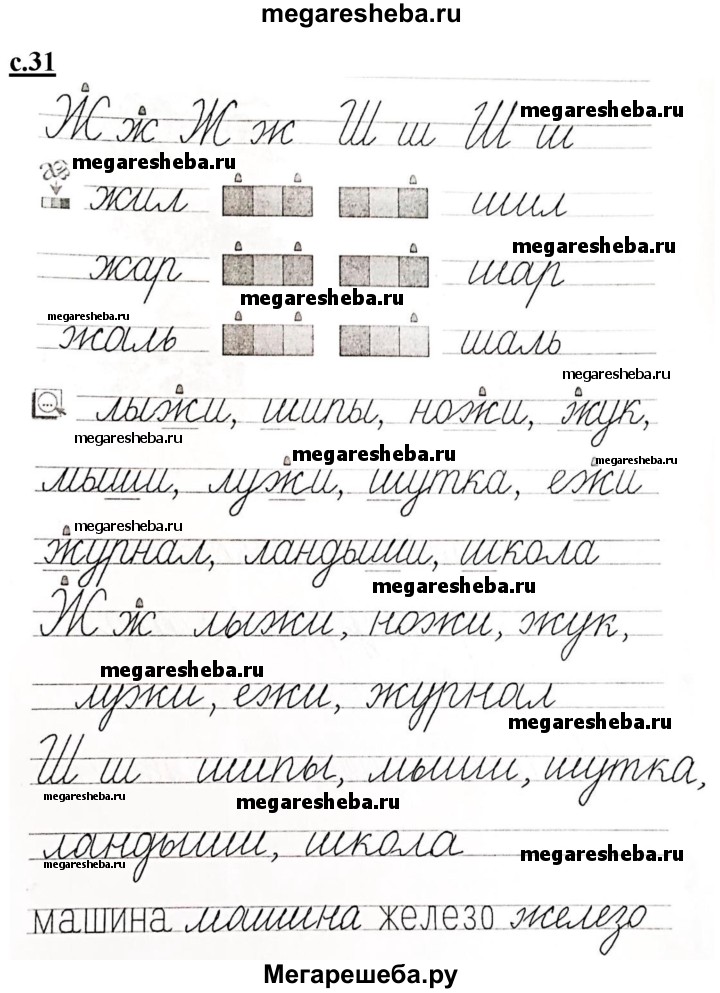 megaresheba.ru
с.31
Ж ж Ж ж Ш ш Ш ш megaresheba.ru
megaresheba.ru
жил шил
megaresheba.ru
жар шар
megaresheba.ru
megaresheba.ru
жаль шаль
megaresheba.ru
лыжи, шипы, ножи, жук,
megaresheba.ru
megaresheba.ru
megaresheba.ru
мыши, лужи, шутка, ежи
megaresheba.ru
журнал, ландыши, школа
megaresheba.ru
Ж ж лыжи, ножи, жук,
megaresheba.ru
лужи, ежи, журнал
megaresheba.ru
Ш ш шипы, мыши, шутка,
megaresheba.ru
megaresheba.ru
ландыши, школа
megaresheba.ru
megaresheba.ru
машина машина железо железо
Мегарешеба.ру